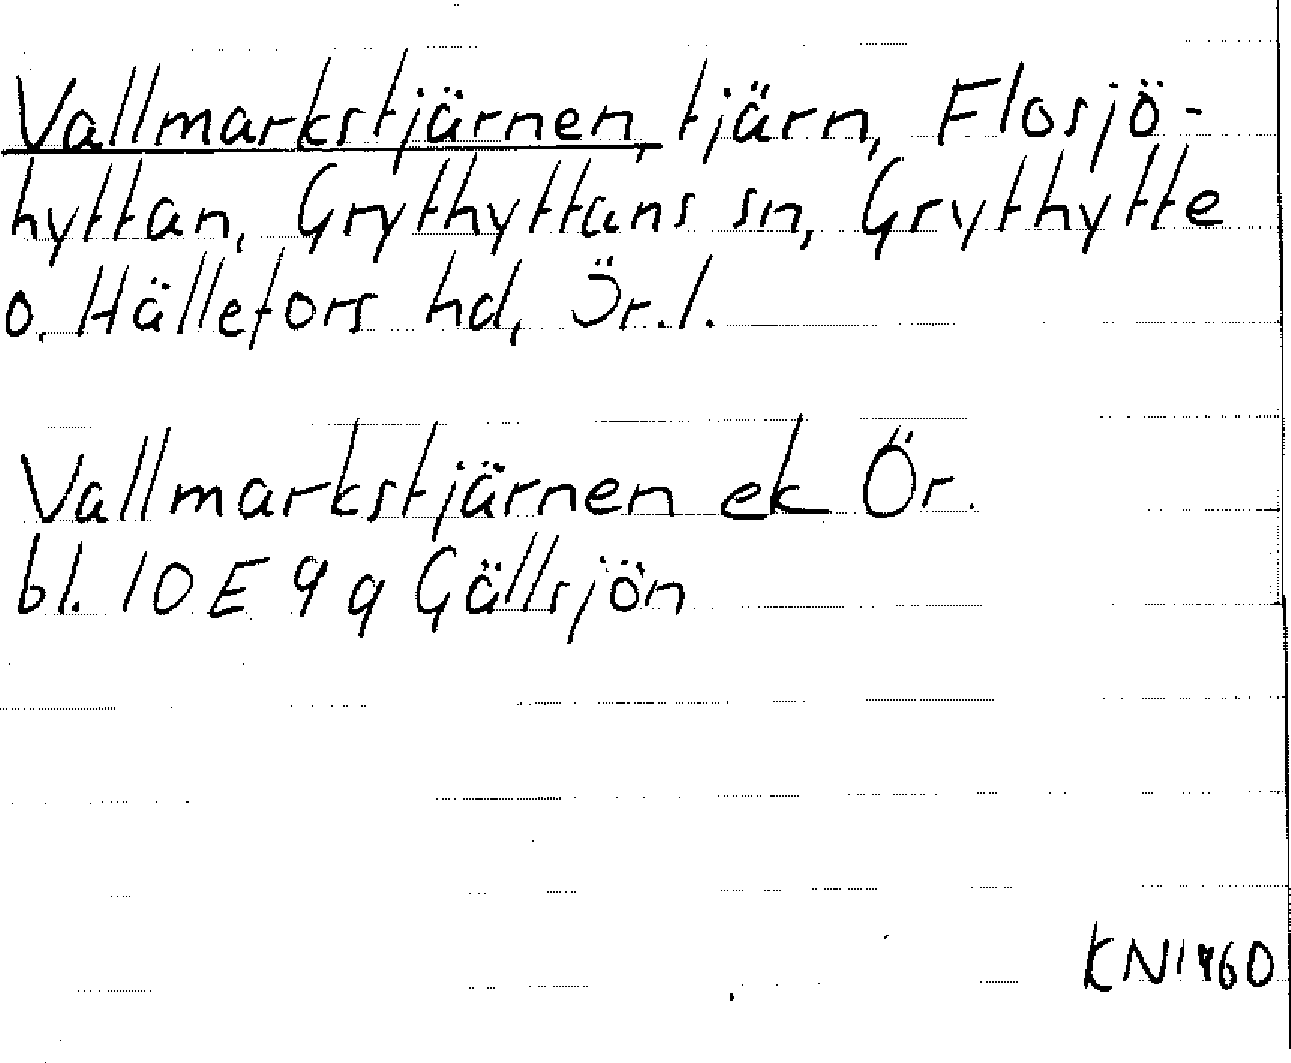 Vallmarkstjärnen, tjärn, Flosjö-
hyttan, Grythyttans sn, Grythytte
o. Hällefors hd, Ör. l.
Vallmarkstjärnen ek Ör.
bl. 10 E 9 g Gällsjön